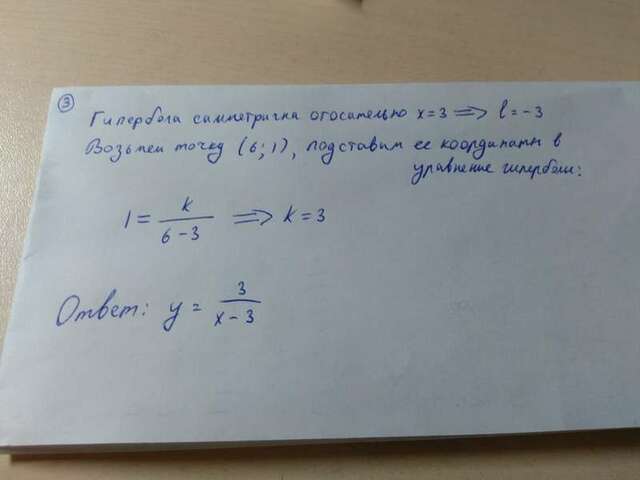 ③
Гипербола симметрична отосательно x=3 ⟹ l=-3
Возьмем точку (6;1), подставим ее координаты в
уравнение гиперболы:
1 = k/(6-3) ⟹ k=3
Ответ: y = 3/(x-3)